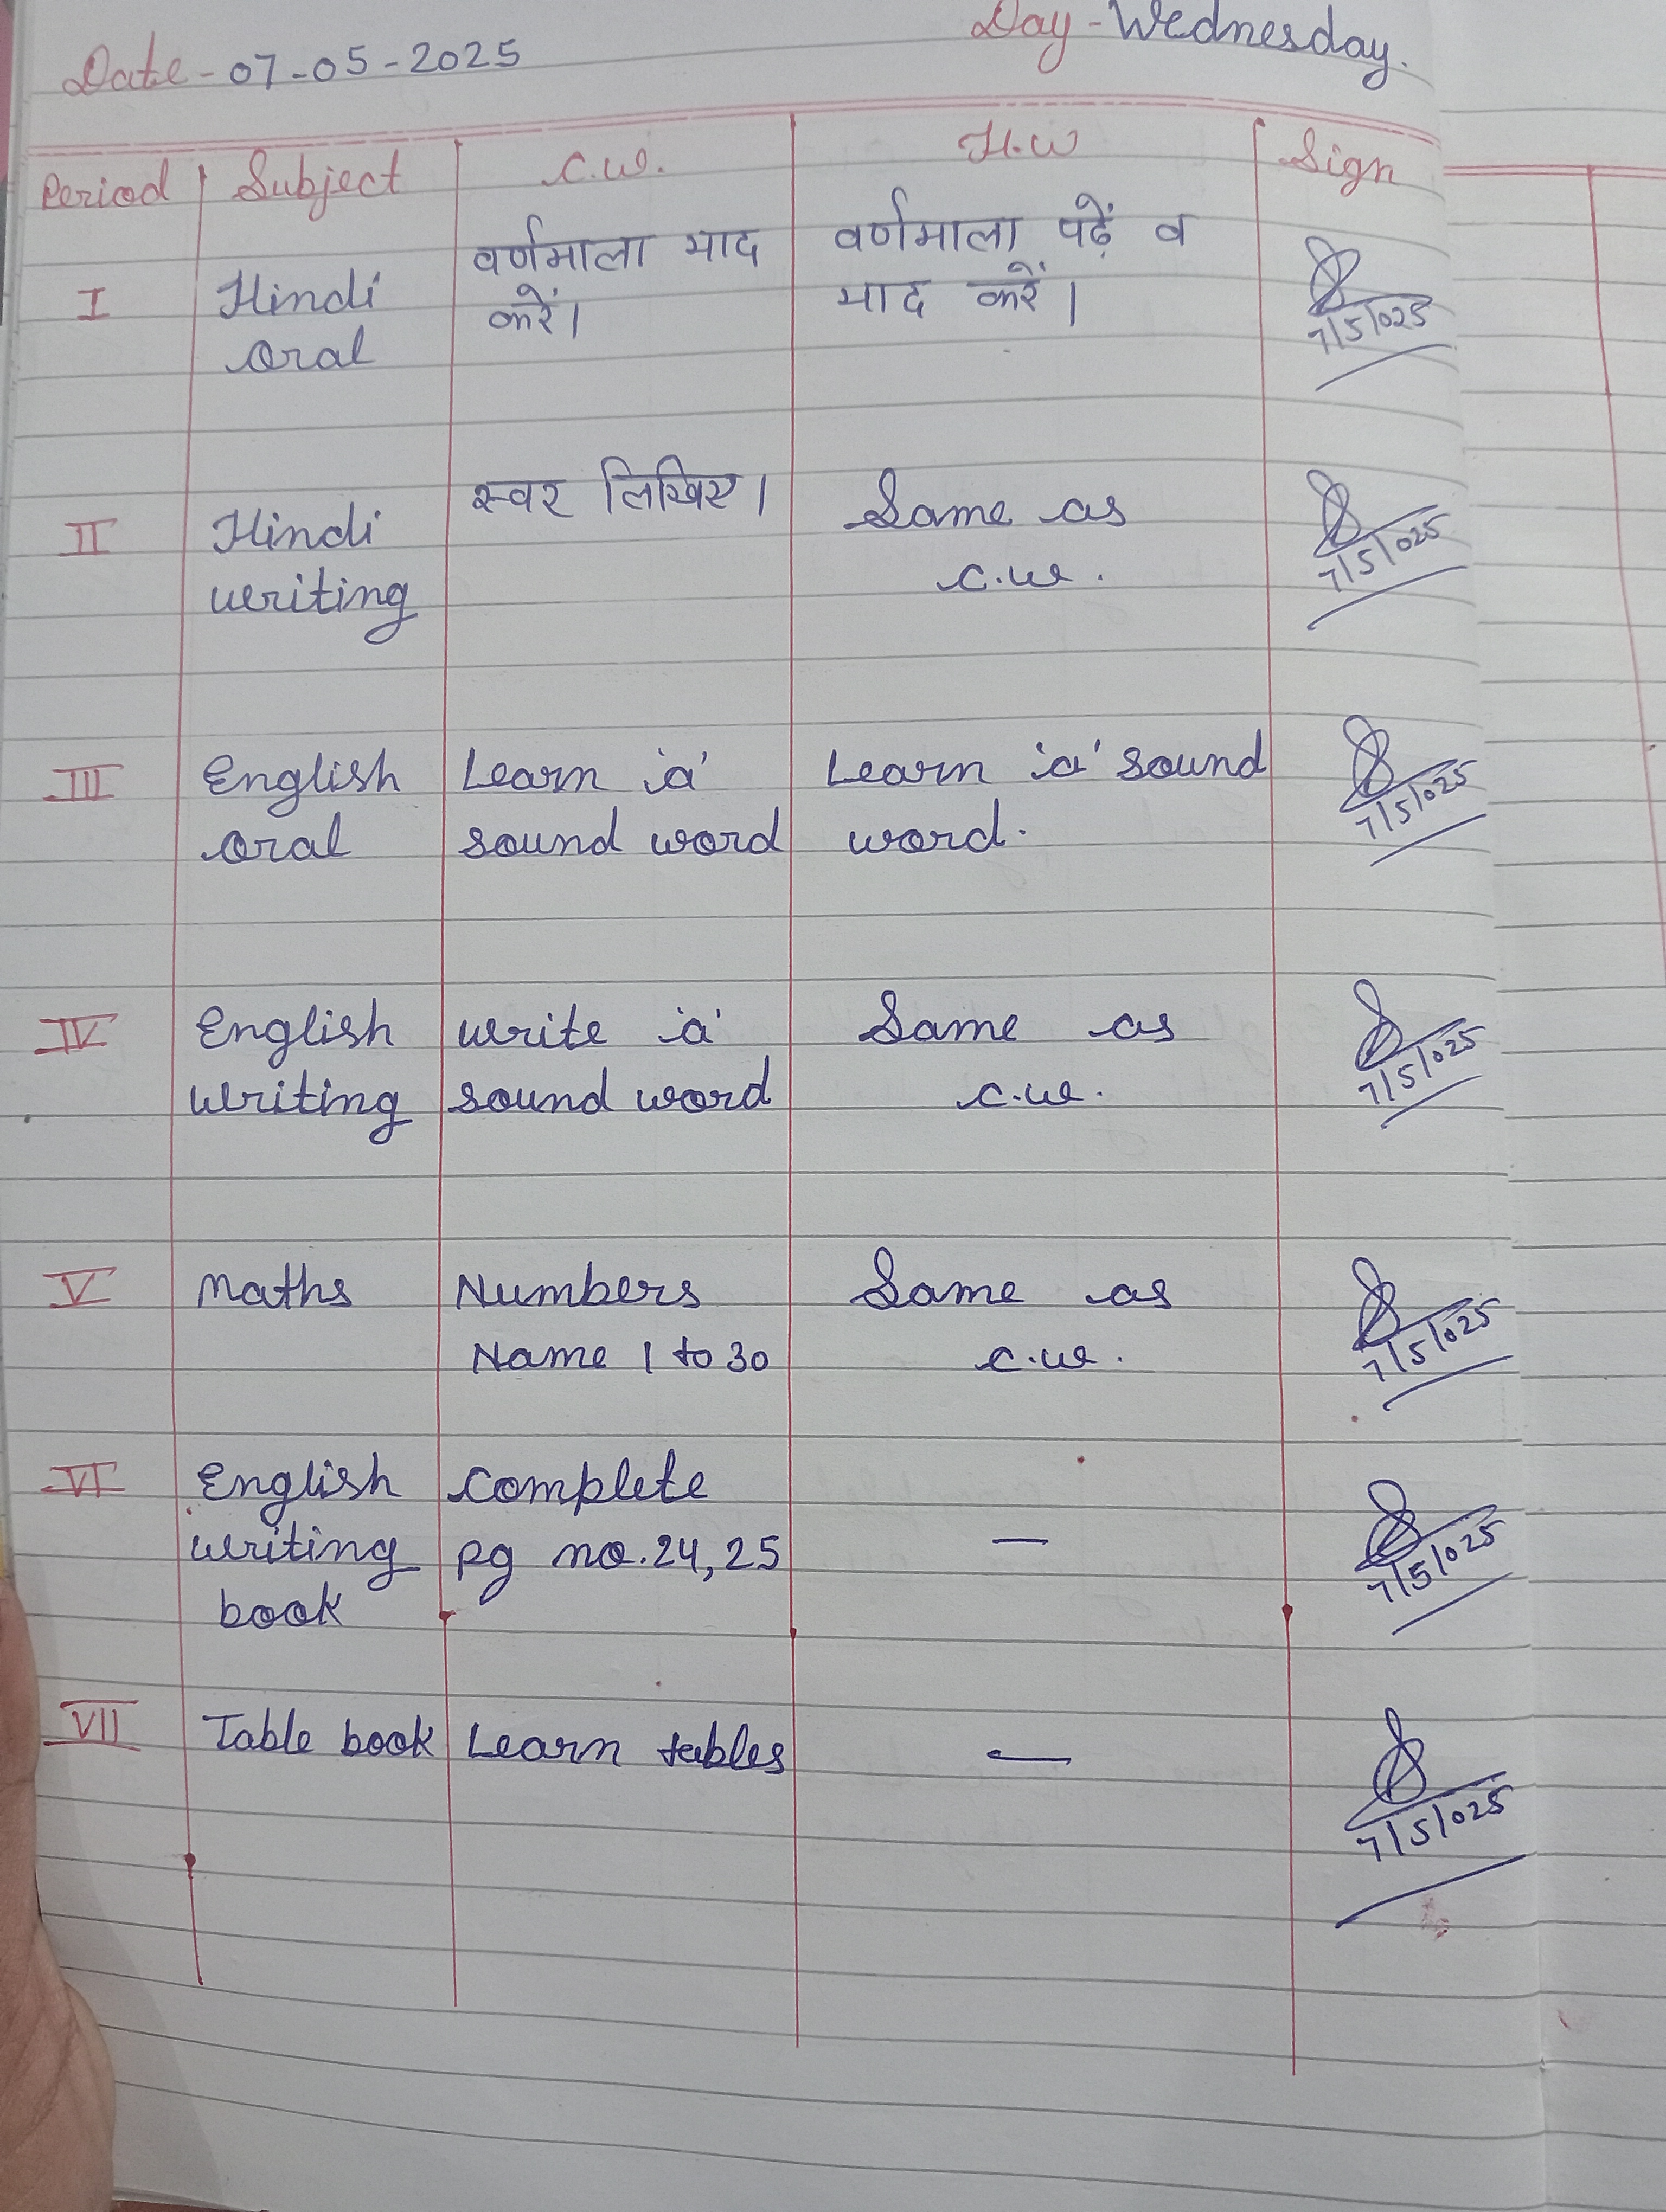 Date - 07-05-2025 Day - Wednesday.
Period Subject C.W. H.W Sign
I Hindi oral
वर्णमाला याद
करें।
वर्णमाला पढ़ें व
याद करें।
7/5/025
II Hindi writing
स्वर लिखिए।
Same as
C.W.
7/5/025
III English oral
Learn 'a'
sound word
Learn 'a' sound
word.
7/5/025
IV English writing
Write 'a'
sound word
Same as
C.W.
7/5/025
V Maths
Numbers
Name 1 to 30
Same as
C.W.
7/5/025
VI English writing book
Complete
pg no. 24, 25
—
7/5/025
VII Table book
Learn tables
—
7/5/025